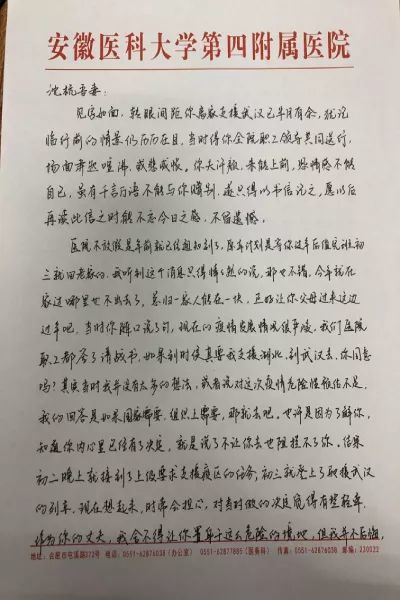 安徽医科大学第四附属医院
沈毓吾妻：
见字如面，转眼间距你离家支援武汉已半月有余，犹记
临行前的情景仍历历在目，当时得你全院职工领导共同送行，
场面喧沸，或悲或恨。你大汗，未能上前，恐情感不能
自已，虽有千言万语不能与你赠别，遂只得以书信记之，愿以后
再读此信之时能不忘今日之感，不留遗憾。
医院不放假是年前就已经通知到了，原本计划是等你过年后值完班初
三就回老家的，我听到这个消息只得悻悻然的说，那也不错，今年就在
家过哪里也不出去了，总归一家人能在一块，正好让你父母过来这边
过年吧。当时你随口说了句，现在的疫情发展情况很严峻，我们医院
职工都签了请战书，如果到时候真要我支援湖北，到武汉去，你同意
吗？其实当时我并没有太多的想法，或者说对这次疫情危险性预估不足，
我的回答是如果国家需要，组织上需要，那就去吧。也许是因为了解你，
知道你内心里已经有了决定，就是说了不让你去也阻拦不了你。结果
初二晚上就接到了上级要求支援疫区的任务，初三就登上了驰援武汉
的列车。现在想起来，时常会担心，对当时做的决定觉得有些轻率，
作为你的丈夫，我舍不得让你置身于这么危险的境地，但我并不后悔，
地址：合肥市屯溪路372号 电话：0551-62876038（办公室） 0551-62877885（医务科） 传真：0551-62876038 邮编：230022